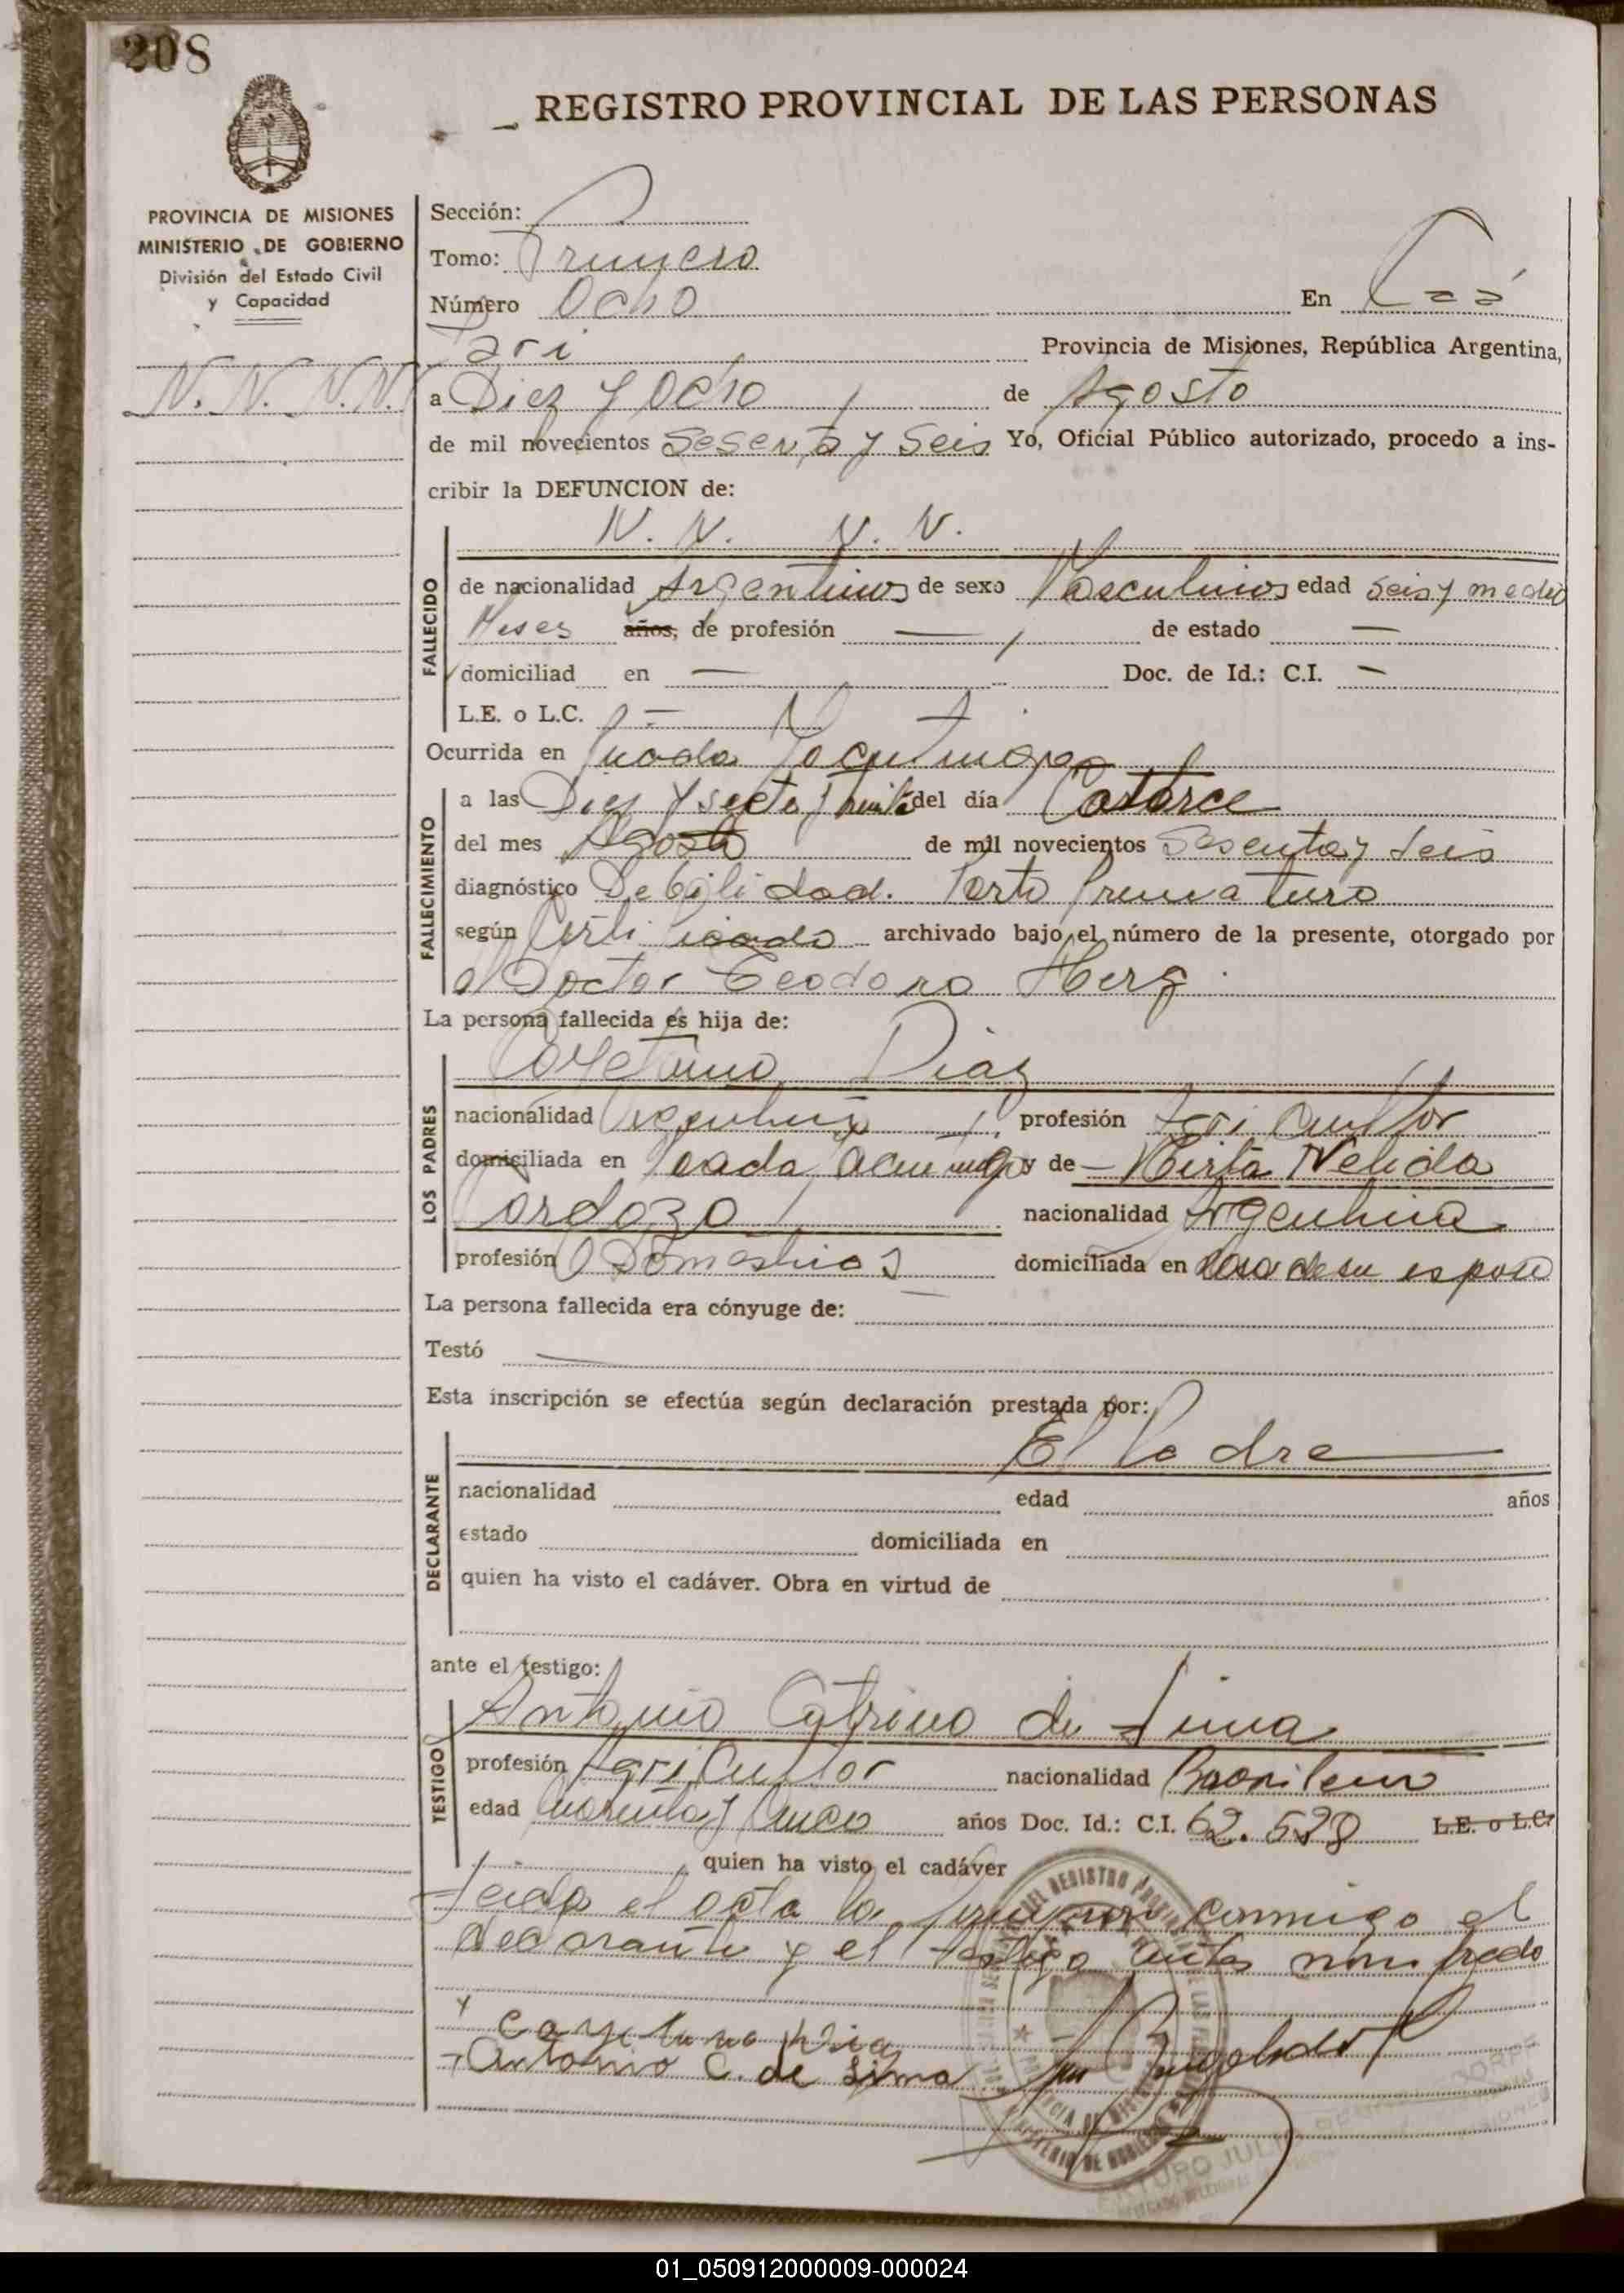 208
REGISTRO PROVINCIAL DE LAS PERSONAS
PROVINCIA DE MISIONES
MINISTERIO DE GOBIERNO
División del Estado Civil
y Capacidad
N. N. N. N.
Sección:
Tomo: Primero
Número Ocho En Caá
Yarí Provincia de Misiones, República Argentina,
a Diez y Ocho de Agosto
de mil novecientos Sesenta y Seis Yo, Oficial Público autorizado, procedo a ins-
cribir la DEFUNCION de:
N. N. N. N.
FALLECIDO
de nacionalidad Argentinos de sexo Masculinos edad Seis y medio
Meses años, de profesión — de estado —
domiciliad en — Doc. de Id.: C.I. —
L.E. o L.C. —
Ocurrida en
FALLECIMIENTO
a las Diez y siete y treinta del día Catorce
del mes Agosto de mil novecientos Sesenta y Seis
diagnóstico Debilidad. Parto Prematuro
según Certificado archivado bajo el número de la presente, otorgado por
el Doctor Teodoro Herz
La persona fallecida es hija de:
LOS PADRES
Cayetano Diaz
nacionalidad Argentina profesión Agricultor
domiciliada en y de — Mirta Nelida
Cardozo nacionalidad Argentina
profesión Domesticas domiciliada en Casa de su esposo
La persona fallecida era cónyuge de:
Testó —
Esta inscripción se efectúa según declaración prestada por:
DECLARANTE
El Padre
nacionalidad edad años
estado domiciliada en
quien ha visto el cadáver. Obra en virtud de
ante el testigo:
TESTIGO
Antonio de Lima
profesión Agricultor nacionalidad Brasilero
edad Cuarenta y Cinco años Doc. Id.: C.I. 62.528 L.E. o L.C.
quien ha visto el cadáver
Leida el acta la firmaron conmigo el
declarante y el testigo antes nombrado
Cayetano Diaz
Antonio C. de Lima
01_050912000009-000024